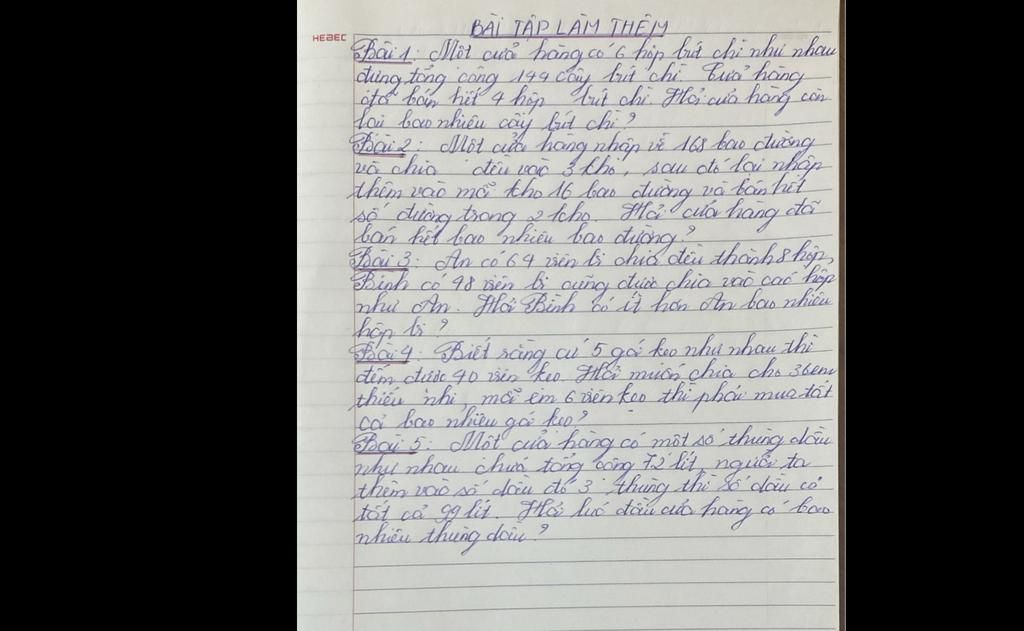 BÀI TẬP LÀM THÊM
HEBEC
Bài 1: Một cửa hàng có 6 hộp bút chì như nhau
đựng tổng cộng 144 cây bút chì. Cửa hàng
đã bán hết 4 hộp bút chì. Hỏi cửa hàng còn
lại bao nhiêu cây bút chì?
Bài 2: Một cửa hàng nhập về 168 bao đường
và chia đều vào 3 kho, sau đó lại nhập
thêm vào mỗi kho 16 bao đường và bán hết
số đường trong 2 kho. Hỏi cửa hàng đã
bán hết bao nhiêu bao đường?
Bài 3: An có 64 viên bi chia đều thành 8 hộp,
Bình có 48 viên bi cũng được chia vào các hộp
như An. Hỏi Bình có ít hơn An bao nhiêu
hộp bi?
Bài 4: Biết rằng cứ 5 gói kẹo như nhau thì
đếm được 40 viên kẹo. Hỏi muốn chia cho 36 em
thiếu nhi, mỗi em 6 viên kẹo thì phải mua tất
cả bao nhiêu gói kẹo?
Bài 5: Một cửa hàng có một số thùng dầu
như nhau chứa tổng cộng 72 lít, người ta
thêm vào số dầu đó 3 thùng thì số dầu có
tất cả 99 lít. Hỏi lúc đầu cửa hàng có bao
nhiêu thùng dầu?